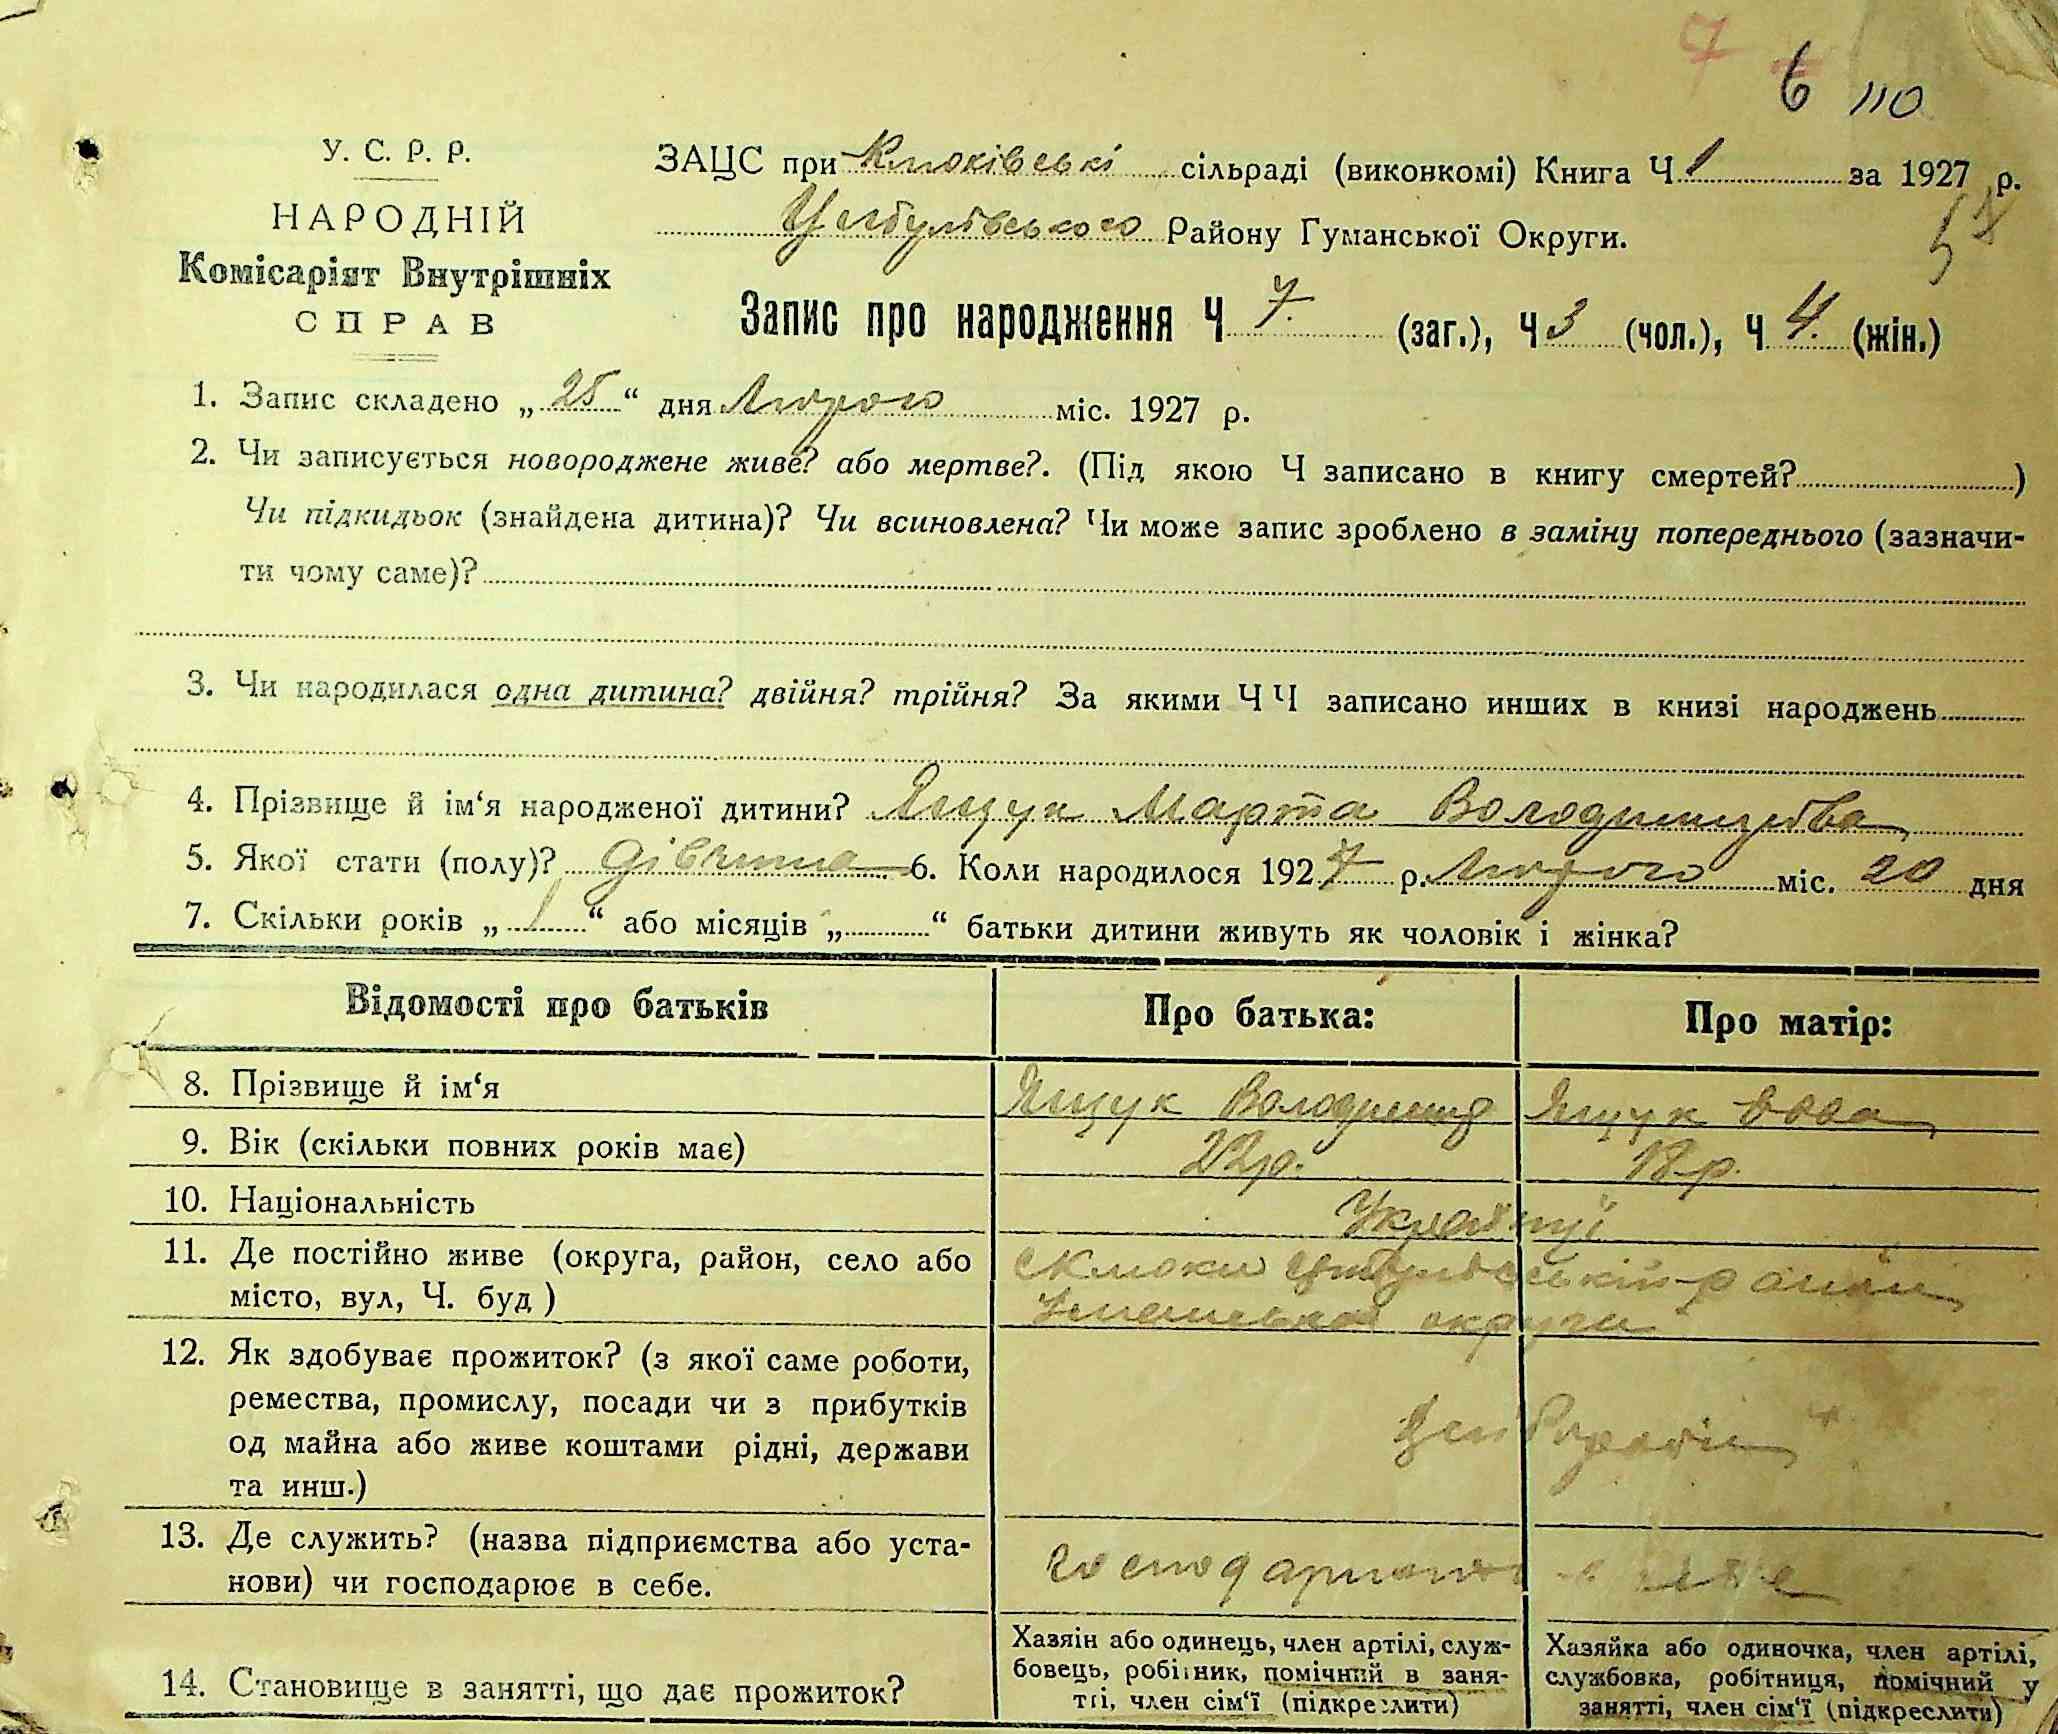 7 6 110
У. С. Р. Р.
НАРОДНІЙ
Комісаріят Внутрішніх
СПРАВ
ЗАЦС при Клюківські сільраді (виконкомі) Книга Ч 1 за 1927 р.
Цибулівського Району Гуманської Округи.
58
Запис про народження Ч 7. (заг.), Ч 3 (чол.), Ч 4. (жін.)
1. Запис складено „ 25 “ дня Лютого міс. 1927 р.
2. Чи записується новороджене живе? або мертве?. (Під якою Ч записано в книгу смертей? )
Чи підкидьок (знайдена дитина)? Чи всиновлена? Чи може запис зроблено в заміну попереднього (зазначи-
ти чому саме)?
3. Чи народилася одна дитина? двійня? трійня? За якими Ч Ч записано инших в книзі народжень
4. Прізвище й ім‘я народженої дитини? Ящук Марта Володимирівна
5. Якої стати (полу)? дівчина 6. Коли народилося 1927 р. Лютого міс. 20 дня
7. Скільки років „ 1 “ або місяців „ “ батьки дитини живуть як чоловік і жінка?
Відомості про батьків Про батька: Про матір:
8. Прізвище й ім‘я Ящук Володимир Ящук
9. Вік (скільки повних років має) 22р. 18р.
10. Національність Українці
11. Де постійно живе (округа, район, село або
місто, вул, Ч. буд )
с Клюки Цибулівський район
Уманської округи
12. Як здобуває прожиток? (з якої саме роботи,
ремества, промислу, посади чи з прибутків
од майна або живе коштами рідні, держави
та инш.)
13. Де служить? (назва підприємства або уста-
нови) чи господарює в себе.
господарюють в себе
14. Становище в занятті, що дає прожиток?
Хазяін або одинець, член артілі, служ-
бовець, робітник, помічний в заня-
тті, член сім‘ї (підкреслити)
Хазяйка або одиночка, член артілі,
службовка, робітниця, помічний у
занятті, член сім‘ї (підкреслити)